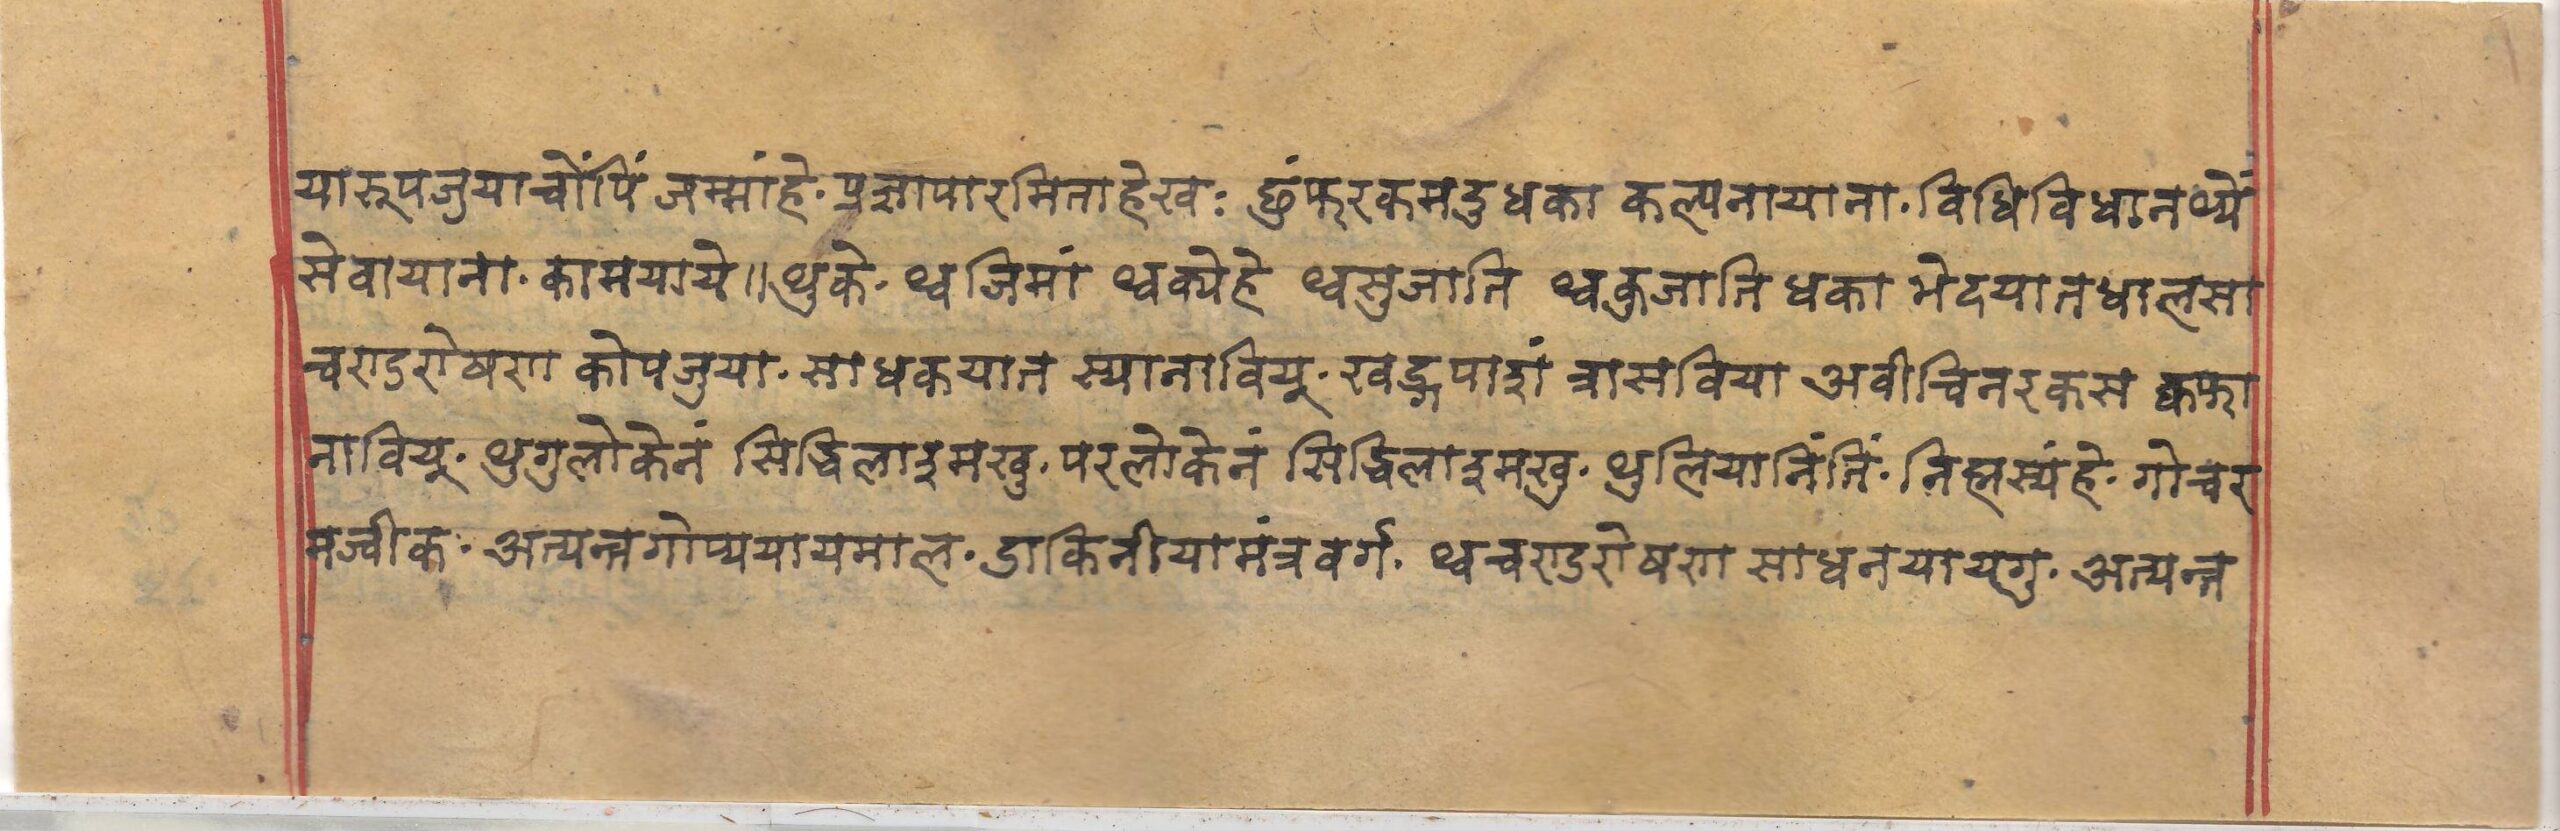 यारूपजुयाचोंपिं जम्मांहे· प्रज्ञापारमिताहेखः छुंफरकमदुधका कल्पनायाना· विधिविधानथ्यें
सेवायाना· कामयाये॥ थुके· थ्वजिमां थ्वक्येहे थ्वसुजाति थ्वकुजाति धका भेदयातधालसा
चण्डरोषण कोपजुया· साधकयात स्यानावियू· खड्गपाशं त्रासविया अवीचिनरकस क्वफा
नावियू· थुगुलोकेनं सिद्धिलाइमखु· परलोकेनं सिद्धिलाइमखु· थुलियानिंतिं· निह्मस्यंहे· गोचर
मज्वीक· अत्यन्तगोप्ययायमाल· डाकिनीयामंत्रवर्ग· थ्वचण्डरोषण साधनयायगु· अत्यन्त